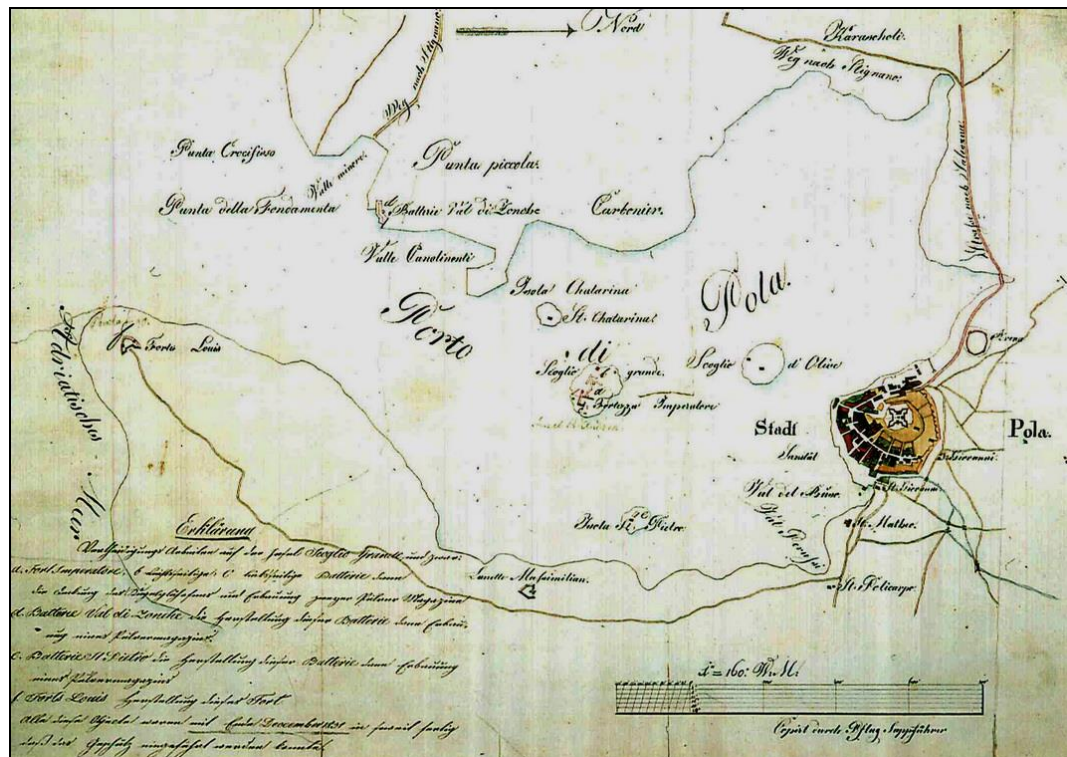 Nord
Karascholi
Weg nach Stignano
Weg nach Stignano
Punta Crocifisso
Punta piccola
Valle minore
Punta della Fondamenta
Batterie Val di Zonche
Carbonir
Valle Canolinonti
Porto
di
Pola
Isola Chatarina
St. Chatarina
Scoglio grande
Fortezza Imperatore
Scoglio d'Olive
Arena
Stadt
Pola.
Sanität
St. Giovanni
Val del Buso
St. Matheo
St. Policarpo
Forts Louis
Adriatisches Meer
Isola St. Pietro
Lunette Massimilian.
Erklärung
auf der Insel Scoglio Grande und zwar:
a. Fort Imperatore. b c Batterie dann
die und Erbauung zweyer Pulver Magazine
d. Batterie Val di Zonche die Herstellung dieser Batterie dann Erbau-
ung eines Pulvermagazins.
e. Batterie St Pietro die Herstellung dieser Batterie dann Erbauung
eines Pulvermagazins
f. Forts Louis Herstellung dieses Fort.
Alle diese Objecte waren mit Ende December in soweit fertig
daß das Geschütz eingeführt werden konnte.
1" = 160. W. Kl.
Copirt durch Pflug Sappführer